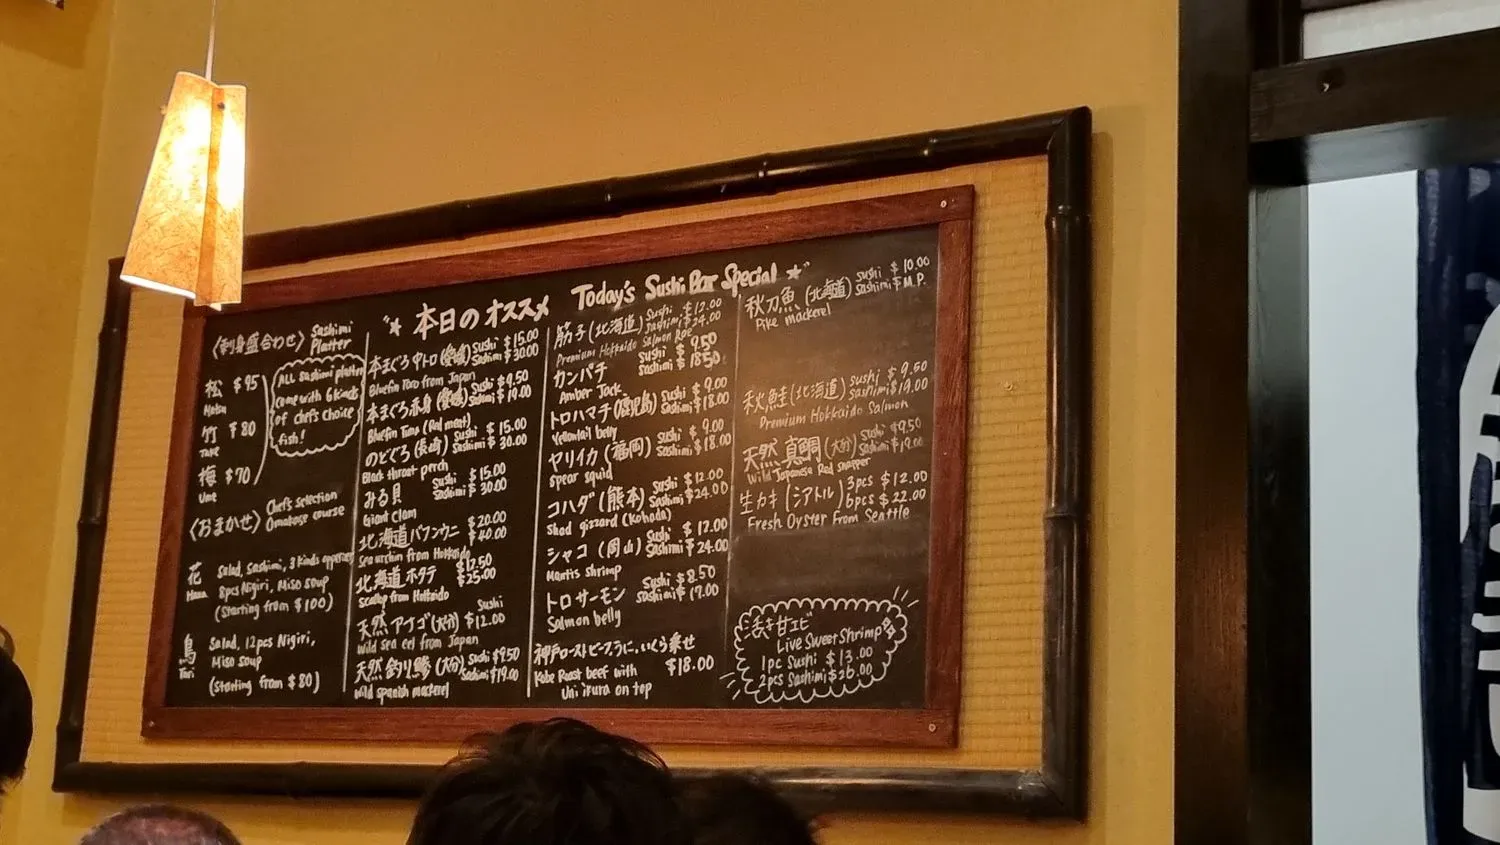 本日のオススメ Today's Sushi Bar Special
〈刺身盛合わせ〉 Sashimi Platter
松 $95
Matsu
竹 $80
Take
梅 $70
Ume
ALL Sashimi platter
come with 6 kinds
of chef's choice
fish!
〈おまかせ〉 Chef's selection
Omakase course
花 Salad, Sashimi, 3 kinds appetizer
Hana 8pcs Nigiri, Miso soup
(Starting from $100)
鳥 Salad, 12pcs Nigiri,
Tori Miso soup
(Starting from $80)
本まぐろ中トロ Sushi $15.00
Sashimi $30.00
Bluefin Toro from Japan
本まぐろ赤身 Sushi $9.50
Sashimi $19.00
Bluefin Tuna (Red meat)
のどぐろ (長崎) Sushi $15.00
Sashimi $30.00
Black throat perch
みる貝 Sushi $15.00
Sashimi $30.00
Giant Clam
北海道バフンウニ $20.00
$40.00
Sea urchin from Hokkaido
北海道ホタテ $12.50
$25.00
Scallop from Hokkaido
天然アナゴ(大分) Sushi $12.00
Wild Sea eel from Japan
天然釣り鯵(大分) Sushi $9.50
Sashimi $19.00
Wild spanish mackerel
筋子(北海道) Sushi $12.00
Sashimi $24.00
Premium Hokkaido Salmon Roe
カンパチ Sushi $9.50
Sashimi 18.50
Amber Jack
トロハマチ(鹿児島) Sushi $9.00
Sashimi $18.00
Yellowtail belly
ヤリイカ(福岡) Sushi $9.00
Sashimi $18.00
Spear squid
コハダ(熊本) Sushi $12.00
Sashimi $24.00
Shad gizzard (Kohada)
シャコ(岡山) Sushi $12.00
Sashimi $24.00
Mantis shrimp
トロサーモン Sushi $8.50
Sashimi $17.00
Salmon belly
神戸ローストビーフうに、いくら乗せ
Kobe Roast beef with $18.00
Uni ikura on top
秋刀魚(北海道) Sushi $10.00
Sashimi $M.P.
Pike mackerel
秋鮭(北海道) Sushi $9.50
Sashimi $19.00
Premium Hokkaido Salmon
天然真鯛(大分) Sushi $9.50
Sashimi $19.00
Wild Japanese Red snapper
生カキ(シアトル) 3pcs $12.00
6pcs $22.00
Fresh Oyster From Seattle
活き甘エビ
Live Sweet Shrimp
1pc Sushi $13.00
2pcs Sashimi $26.00